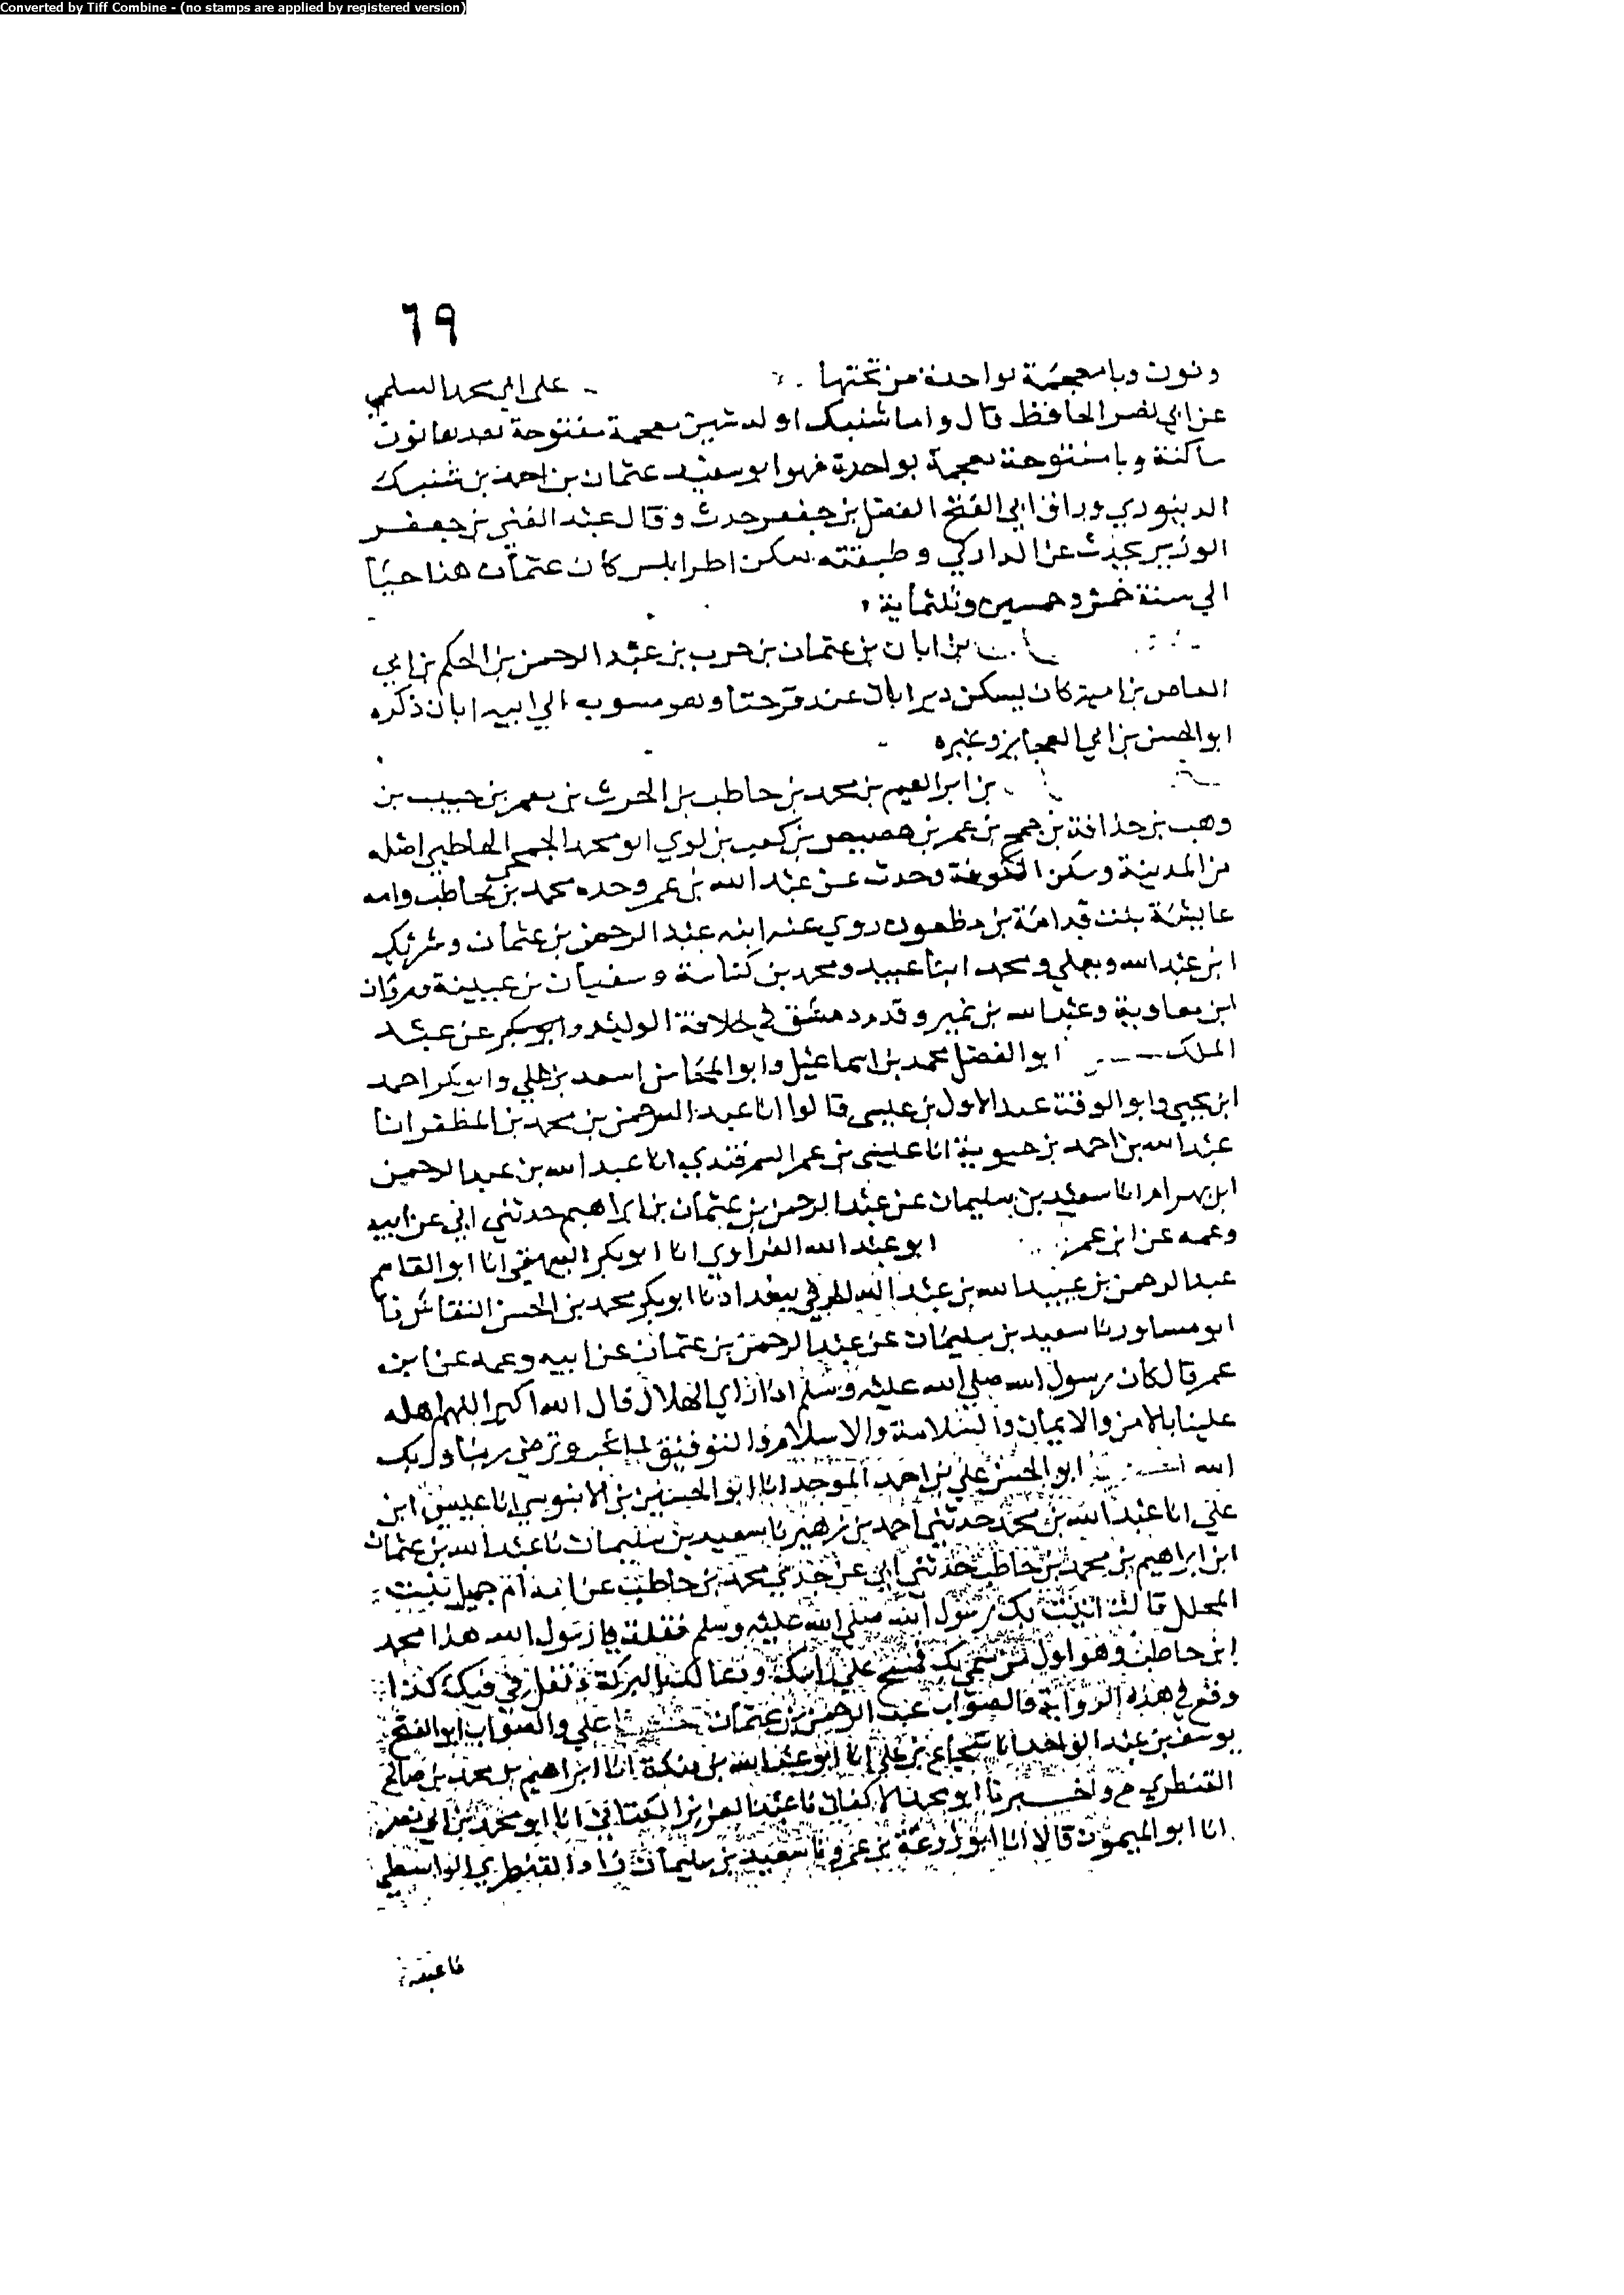 Converted by Tiff Combine - (no stamps are applied by registered version)
٦٩
ونون وبا معجمة بواحدة من تحتها على ابي محمد السلمي
عن ابي نصر الحافظ قال واما شنبك اوله شين معجمة مفتوحة بعدها نون
ساكنة وبا مفتوحة معجمة بواحدة فهو ابو سعيد عثمان بن احمد بن شنبك
الدينوري وراق ابي الفتح الفضل بن جعفر حدث وقال عبد الغني بن جعفر
الوزير يحدث عن الداركي وطبقته سكن اطرابلس كان عثمان هذا حيا
الي سنة خمس وخمسين وثلثماية
بن ابان بن عثمان بن حرب بن عبد الرحمن بن الحكم بن ابي
العاص بن امية كان يسكن دير ابان عند قرحتا وهو منسوب الي ابيه ابان ذكره
ابو الحسن بن ابي العجايز وغيره
بن ابراهيم بن محمد بن حاطب بن الحرث بن معمر بن حبيب بن
وهب بن حذافة بن جمح بن عمر بن هصيص بن كعب بن لوي ابو محمد الجمحي الحاطبي اصله
من المدينة وسكن الكوفة وحدث عن عبد الله بن عمر وجده محمد بن حاطب وامه
عايشة بنت قدامة بن مظعون روي عنه ابنه عبد الرحمن بن عثمان وشريك
ابن عبد الله ويعلي ومحمد ابنا عبيد ومحمد بن كناسة وسفيان بن عيينة ومروان
ابن معاوية وعبد الله بن نمير وقدم دمشق في خلافة الوليد وابو بكر عن عبد
الملك ابو الفضل محمد بن اسماعيل وابو المحاسن اسعد بن علي وابو بكر احمد
ابن يحيي وابو الوقت عبد الاول بن عيسي قالوا انا عبد الرحمن بن محمد بن المظفر انا
عبد الله بن احمد بن حموية انا عيسي بن عمر السمرقندي انا عبد الله بن عبد الرحمن
ابن بهرام انا سعيد بن سليمان عن عبد الرحمن بن عثمان بن ابراهيم حدثني ابي عن ابيه
وعمه عن ابن عمر ابو عبد الله الفراوي انا ابو بكر البيهقي انا ابو القاسم
عبد الرحمن بن عبيد الله بن عبد الله الحرفي ببغداد نا ابو بكر محمد بن الحسن النقاش نا
ابو مساور نا سعيد بن سليمان عن عبد الرحمن بن عثمان عن ابيه وعمه عن ابن
عمر قال كان رسول الله صلي الله عليه وسلم اذا راي الهلال قال الله اكبر اللهم اهله
علينا بالامن والايمان والسلامة والاسلام والتوفيق لما تحب وترضي ربنا وربك
الله ابو الحسن علي بن احمد الموحد انا ابو الحسين بن الابنوسي انا عيسي ابن
علي انا عبد الله بن محمد حدثني احمد بن زهير نا سعيد بن سليمان نا عبد الله بن عثمان
ابن ابراهيم بن محمد بن حاطب حدثني ابي عن جدي محمد بن حاطب عن امه ام جميل بنت
المحلل قالت اتيت بك رسول الله صلي الله عليه وسلم فقلت يا رسول الله هذا محمد
ابن حاطب وهو اول من سمي بك فمسح علي راسك ودعا لك بالبركة وتفل في فيك كذا
وقع في هذه الرواية والصواب عبد الرحمن بن عثمان علي والصواب ابو الفتح
يوسف بن عبد الواحد انا شجاع بن علي انا ابو عبد الله بن مندة انا ابراهيم بن محمد بن صالح
القنطري ح واخبرنا ابو محمد الاكفاني نا عبد العزيز الكتاني انا ابو محمد بن ابي نصر
انا ابو الميمون قالا انا ابو زرعة بن عمرو نا سعيد بن سليمان زاد القنطري الواسطي